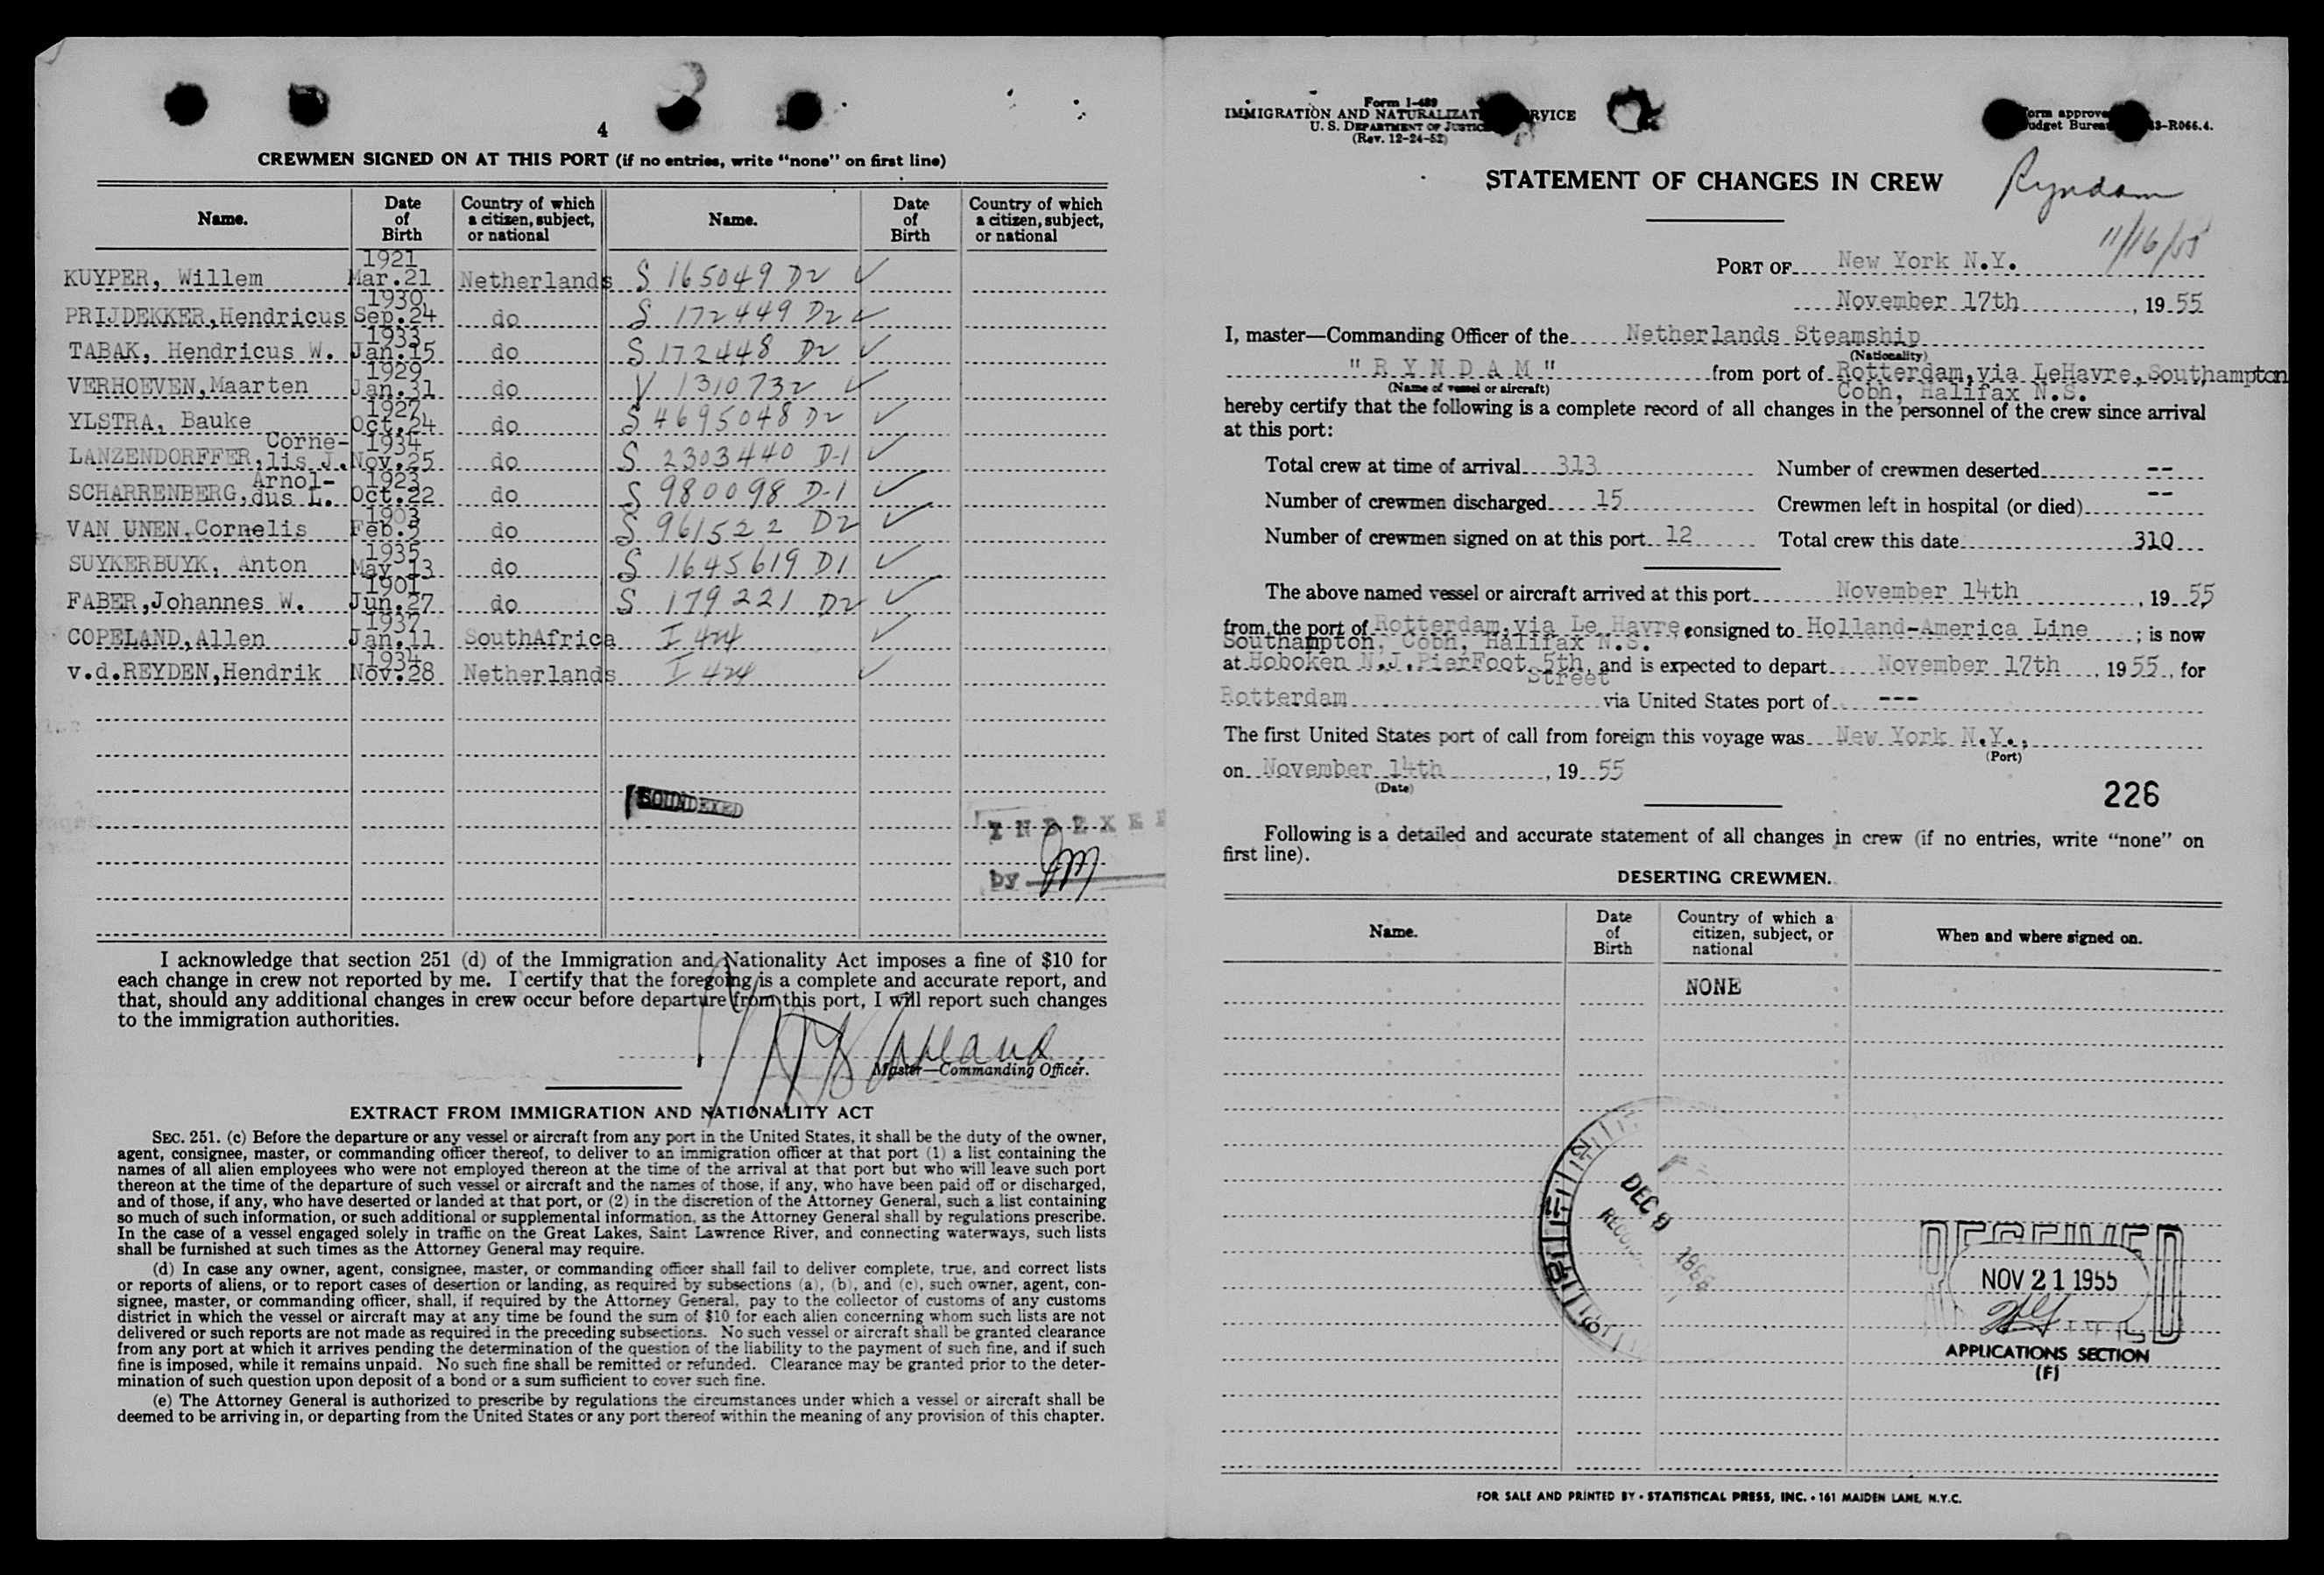 4
CREWMEN SIGNED ON AT THIS PORT (if no entries, write "none" on first line)
Name. Date of Birth Country of which a citizen, subject, or national Name. Date of Birth Country of which a citizen, subject, or national
KUYPER, Willem 1921 Mar.21 Netherlands S 165049 D2 ✓
PRIJDEKKER,Hendricus 1930 Sep.24 do S 172449 D2 ✓
TABAK, Hendricus W. 1933 Jan.15 do S 172448 D2 ✓
VERHOEVEN,Maarten 1929 Jan.31 do V 1310732 ✓
YLSTRA, Bauke 1927 Oct.24 do S 4695048 D2 ✓
LANZENDORFFER,Corne-lis J. 1934 Nov.25 do S 2303440 D-1 ✓
SCHARRENBERG,Arnol-dus L. 1923 Oct.22 do S 980098 D-1 ✓
VAN UNEN,Cornelis 1903 Feb.5 do S 961522 D2 ✓
SUYKERBUYK, Anton 1935 May 13 do S 1645619 D1 ✓
FABER,Johannes W. 1901 Jun.27 do S 179221 D2 ✓
COPELAND,Allen 1937 Jan.11 SouthAfrica I 424 ✓
v.d.REYDEN,Hendrik 1934 Nov.28 Netherlands I 424 ✓
SOUNDEXED
INDEXED
by JM
I acknowledge that section 251 (d) of the Immigration and Nationality Act imposes a fine of $10 for
each change in crew not reported by me. I certify that the foregoing is a complete and accurate report, and
that, should any additional changes in crew occur before departure from this port, I will report such changes
to the immigration authorities.
Master—Commanding Officer.
EXTRACT FROM IMMIGRATION AND NATIONALITY ACT
SEC. 251. (c) Before the departure or any vessel or aircraft from any port in the United States, it shall be the duty of the owner,
agent, consignee, master, or commanding officer thereof, to deliver to an immigration officer at that port (1) a list containing the
names of all alien employees who were not employed thereon at the time of the arrival at that port but who will leave such port
thereon at the time of the departure of such vessel or aircraft and the names of those, if any, who have been paid off or discharged,
and of those, if any, who have deserted or landed at that port, or (2) in the discretion of the Attorney General, such a list containing
so much of such information, or such additional or supplemental information, as the Attorney General shall by regulations prescribe.
In the case of a vessel engaged solely in traffic on the Great Lakes, Saint Lawrence River, and connecting waterways, such lists
shall be furnished at such times as the Attorney General may require.
(d) In case any owner, agent, consignee, master, or commanding officer shall fail to deliver complete, true, and correct lists
or reports of aliens, or to report cases of desertion or landing, as required by subsections (a), (b), and (c), such owner, agent, con-
signee, master, or commanding officer, shall, if required by the Attorney General, pay to the collector of customs of any customs
district in which the vessel or aircraft may at any time be found the sum of $10 for each alien concerning whom such lists are not
delivered or such reports are not made as required in the preceding subsections. No such vessel or aircraft shall be granted clearance
from any port at which it arrives pending the determination of the question of the liability to the payment of such fine, and if such
fine is imposed, while it remains unpaid. No such fine shall be remitted or refunded. Clearance may be granted prior to the deter-
mination of such question upon deposit of a bond or a sum sufficient to cover such fine.
(e) The Attorney General is authorized to prescribe by regulations the circumstances under which a vessel or aircraft shall be
deemed to be arriving in, or departing from the United States or any port thereof within the meaning of any provision of this chapter.
Form I-489
IMMIGRATION AND NATURALIZAT RVICE
U. S. DEPARTMENT OF JUSTIC
(Rev. 12-24-52)
orm approve
udget Burea 3-R066.4.
STATEMENT OF CHANGES IN CREW
Ryndam
11/16/55
PORT OF New York N.Y.
November 17th, 1955
I, master—Commanding Officer of the Netherlands Steamship
(Nationality)
"RYNDAM" from port of Rotterdam,via LeHavre,Southampton
(Name of vessel or aircraft) Cobh, Halifax N.S.
hereby certify that the following is a complete record of all changes in the personnel of the crew since arrival
at this port:
Total crew at time of arrival 313 Number of crewmen deserted --
Number of crewmen discharged 15 Crewmen left in hospital (or died) --
Number of crewmen signed on at this port 12 Total crew this date 310
The above named vessel or aircraft arrived at this port November 14th, 1955
from the port of Rotterdam,via Le Havre consigned to Holland-America Line; is now
Southampton, Cobh, Halifax N.S.
at Hoboken N.J.PierFoot 5th, and is expected to depart November 17th, 1955, for
Street
Rotterdam via United States port of ---
The first United States port of call from foreign this voyage was New York N.Y.,
(Port)
on November 14th, 1955
(Date)
226
Following is a detailed and accurate statement of all changes in crew (if no entries, write "none" on
first line).
DESERTING CREWMEN.
Name. Date of Birth Country of which a citizen, subject, or national When and where signed on.
NONE
DEC 9
NOV 21 1955
APPLICATIONS SECTION
(F)
FOR SALE AND PRINTED BY • STATISTICAL PRESS, INC. • 161 MAIDEN LANE, N.Y.C.